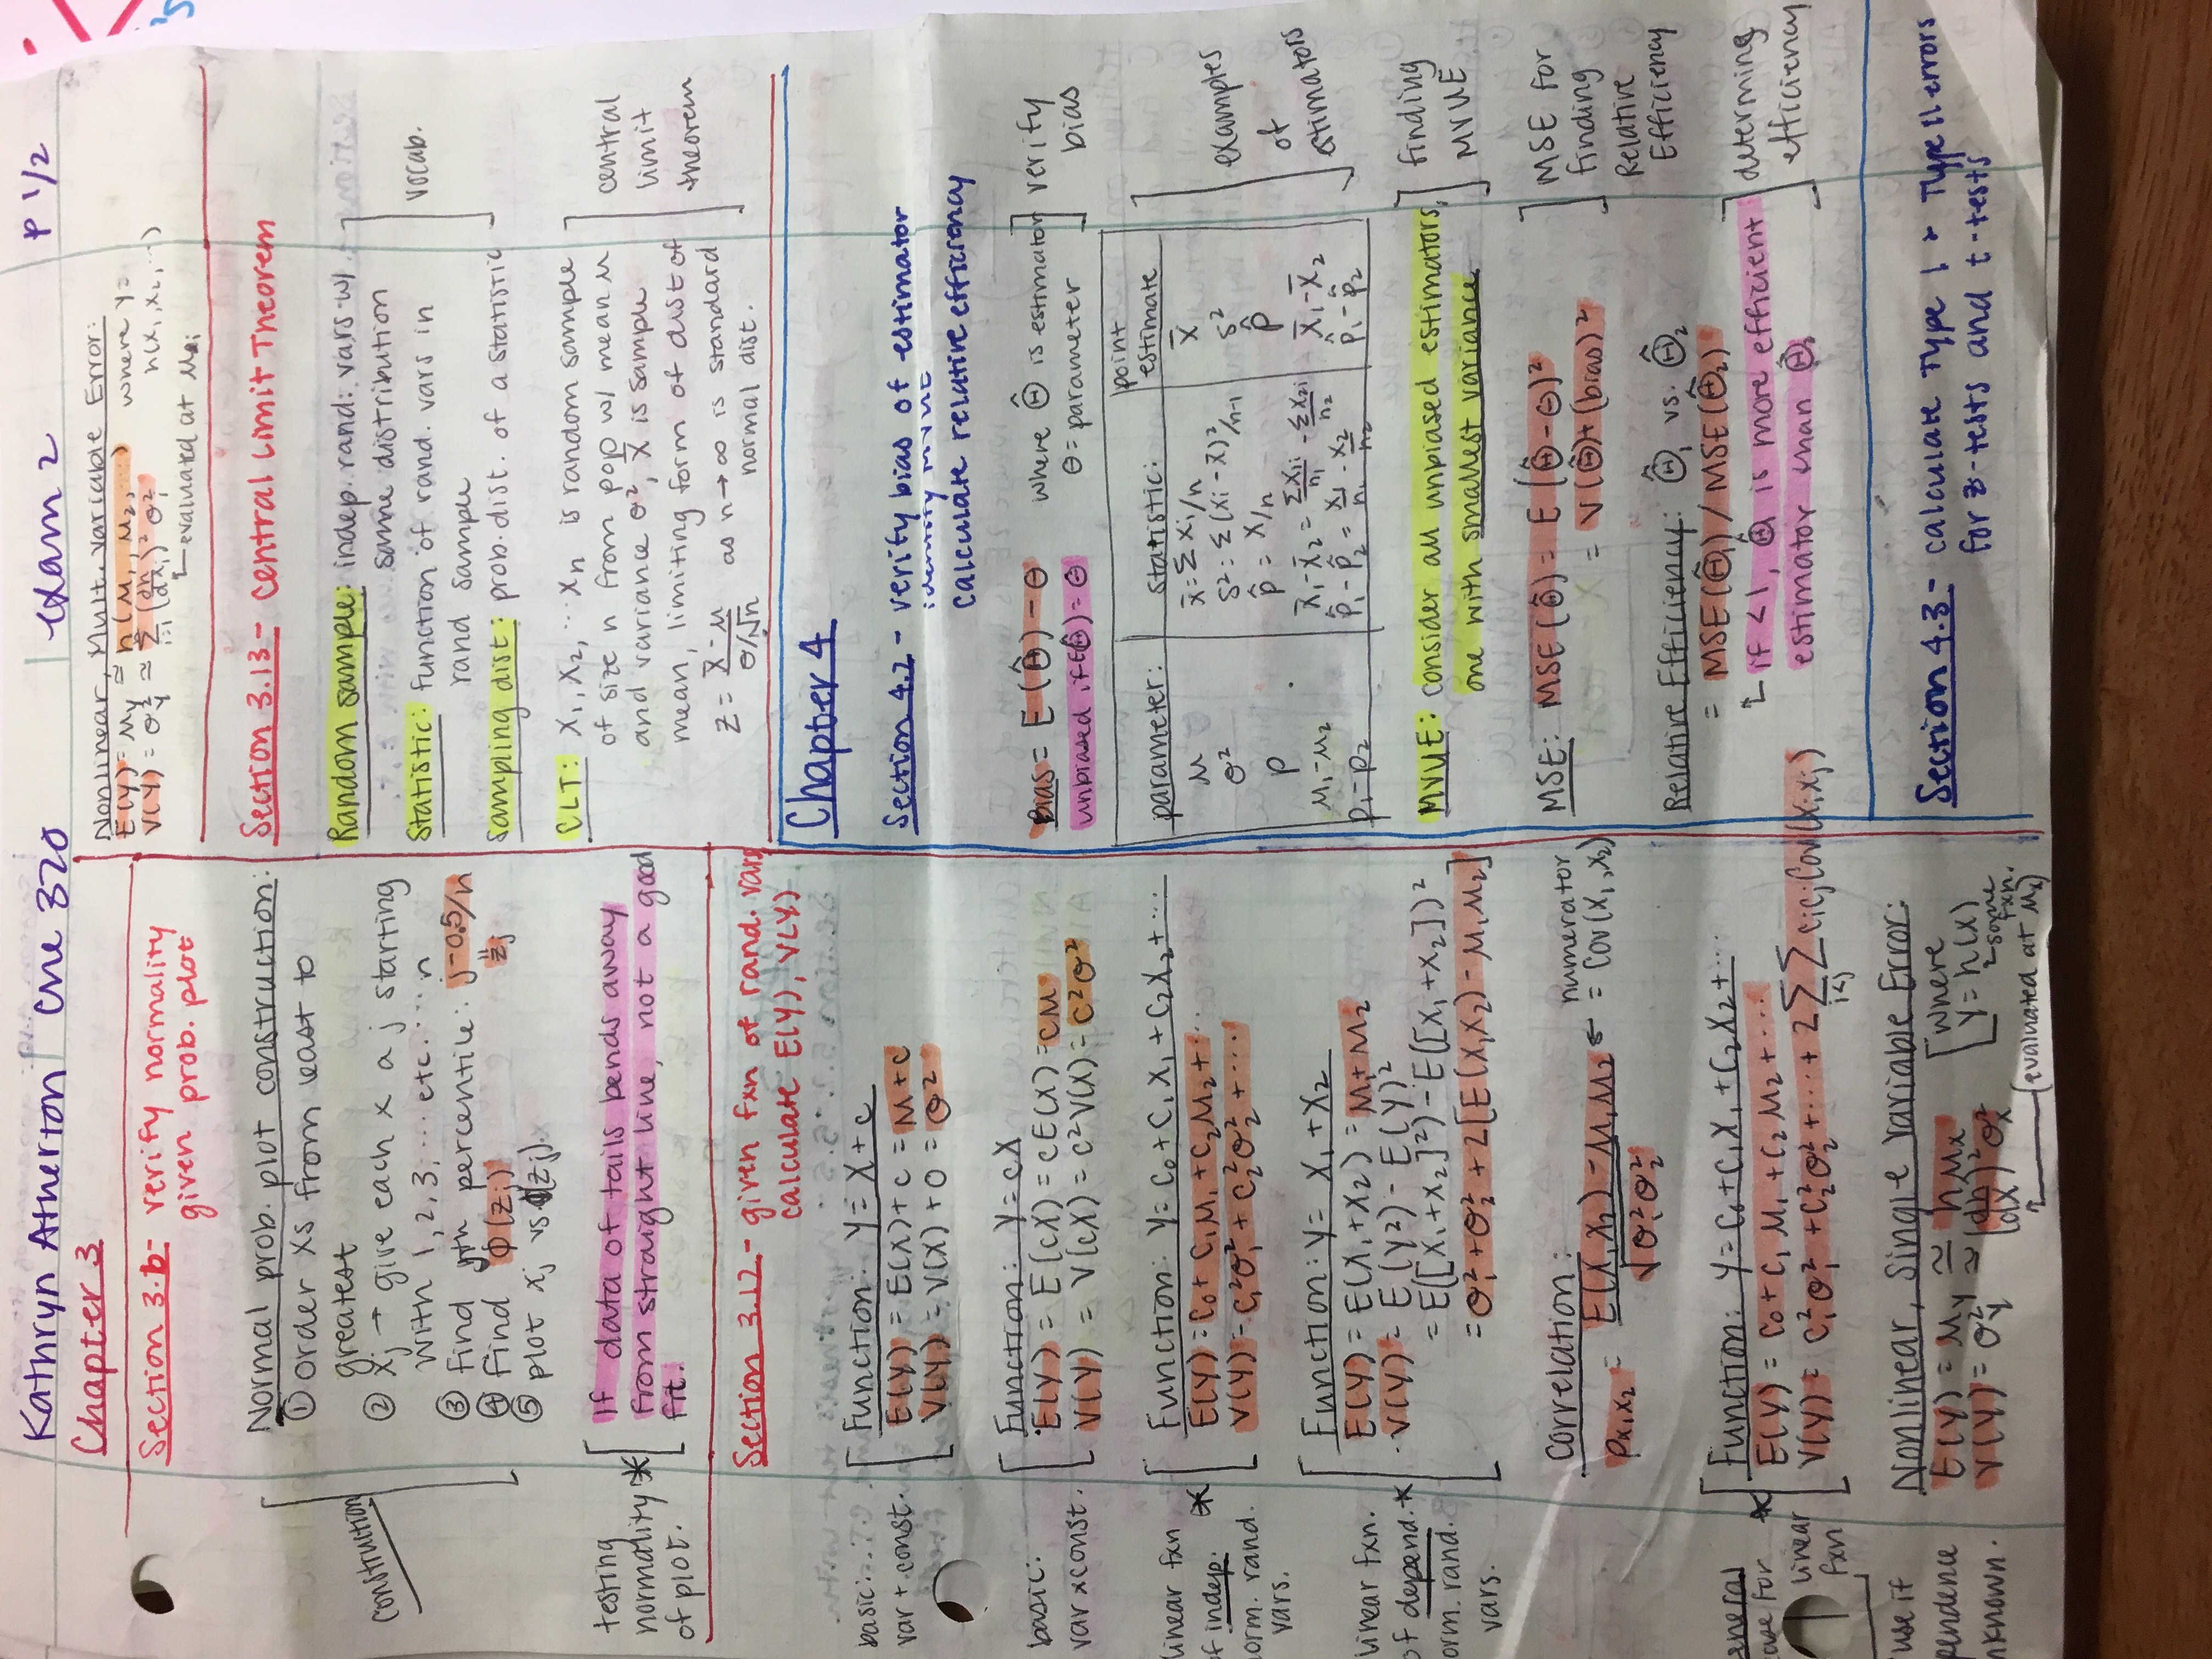 Kathryn Atherton Che 320 exam 2 p 1/2
Chapter 3
Section 3.6 - verify normality
given prob. plot
Normal prob. plot construction:
① order Xs from least to
greatest
② xj → give each x a j starting
with 1, 2, 3, ... etc. ... n
③ find jth percentile: j-0.5/n
④ find Φ(zj) = zj
⑤ plot xj vs. Φ(zj).
construction
testing
normality *
of plot.
If data of tails bends away
from straight line, not a good
fit.
Section 3.12 - given fxn of rand. vars
calculate E(Y), V(Y)
basic:
var + const.
Function: Y = X + c
E(Y) = E(X) + c = μ + c
V(Y) = V(X) + 0 = σ²
basic:
var x const.
Function: Y = cX
E(Y) = E(cX) = cE(X) = cμ
V(Y) = V(cX) = c²V(X) = c²σ²
linear fxn
of indep. *
norm. rand.
vars.
Function: Y = C₀ + C₁X₁ + C₂X₂ + ...
E(Y) = C₀ + C₁μ₁ + C₂μ₂ + ...
V(Y) = C₁²σ₁² + C₂²σ₂² + ...
linear fxn.
of depend. *
norm. rand.
vars.
Function: Y = X₁ + X₂
E(Y) = E(X₁ + X₂) = μ₁ + μ₂
V(Y) = E(Y²) - E(Y)²
= E([X₁ + X₂]²) - E([X₁ + X₂])²
= σ₁² + σ₂² + 2[E(X₁X₂) - μ₁μ₂]
Correlation:
ρx₁x₂ = E(X₁X₂) - μ₁μ₂ / √σ₁²σ₂² ← numerator
= Cov(X₁, X₂)
general
case for *
linear
fxn
use if
pendence
nknown.
Function: Y = C₀ + C₁X₁ + C₂X₂ + ...
E(Y) = C₀ + C₁μ₁ + C₂μ₂ + ...
V(Y) = C₁²σ₁² + C₂²σ₂² + ... + 2 Σ Σ cicjCov(xixj)
i<j
Nonlinear, Single Variable Error:
E(Y) = μY ≅ hμx
V(Y) = σ²Y ≅ (dh/dx)² σ²x
where
Y = h(X)
some
fxn.
(evaluated at μx)
Nonlinear, Mult. Variable Error:
E(Y) = μY ≅ h(μ₁, μ₂, ...) where Y =
V(Y) = σ²Y ≅ Σ (∂h/∂xi)² σi² h(X₁, X₂, ...)
i=1
evaluated at μi
Section 3.13 - Central Limit Theorem
Random sample: indep. rand. vars w/
same distribution
Statistic: function of rand. vars in
rand sample
Sampling dist: prob. dist. of a statistic
vocab.
CLT: X₁, X₂, ... Xn is random sample
of size n from pop w/ mean μ
and variance σ², X̄ is sample
mean, limiting form of dist of
Z = X̄ - μ / σ/√n as n → ∞ is standard
normal dist.
central
limit
theorem
Chapter 4
Section 4.2 - verify bias of estimator
identify MVUE
calculate relative efficiency
Bias = E(Θ̂) - Θ where Θ̂ is estimator
unbiased if E(Θ̂) = Θ Θ = parameter
verify
bias
parameter: statistic: point estimate
μ x̄ = Σxi/n x̄
σ² s² = Σ(xi - x̄)²/n-1 s²
p p̂ = x/n p̂
μ₁-μ₂ x̄₁-x̄₂ = Σx₁i/n₁ - Σx₂i/n₂ x̄₁-x̄₂
p₁-p₂ p̂₁-p̂₂ = x₁/n₁ - x₂/n₂ p̂₁-p̂₂
examples
of
estimators
MVUE: consider all unbiased estimators,
one with smallest variance
finding
MVUE
MSE: MSE(Θ̂) = E(Θ̂ - Θ)²
= V(Θ̂) + (bias)²
MSE for
finding
Relative
Efficiency
Relative Efficiency: Θ̂₁ vs. Θ̂₂
= MSE(Θ̂₁) / MSE(Θ̂₂)
if < 1, Θ̂₁ is more efficient
estimator than Θ̂₂
determining
efficiency
Section 4.3 - calculate Type I & Type II errors
for z-tests and t-tests